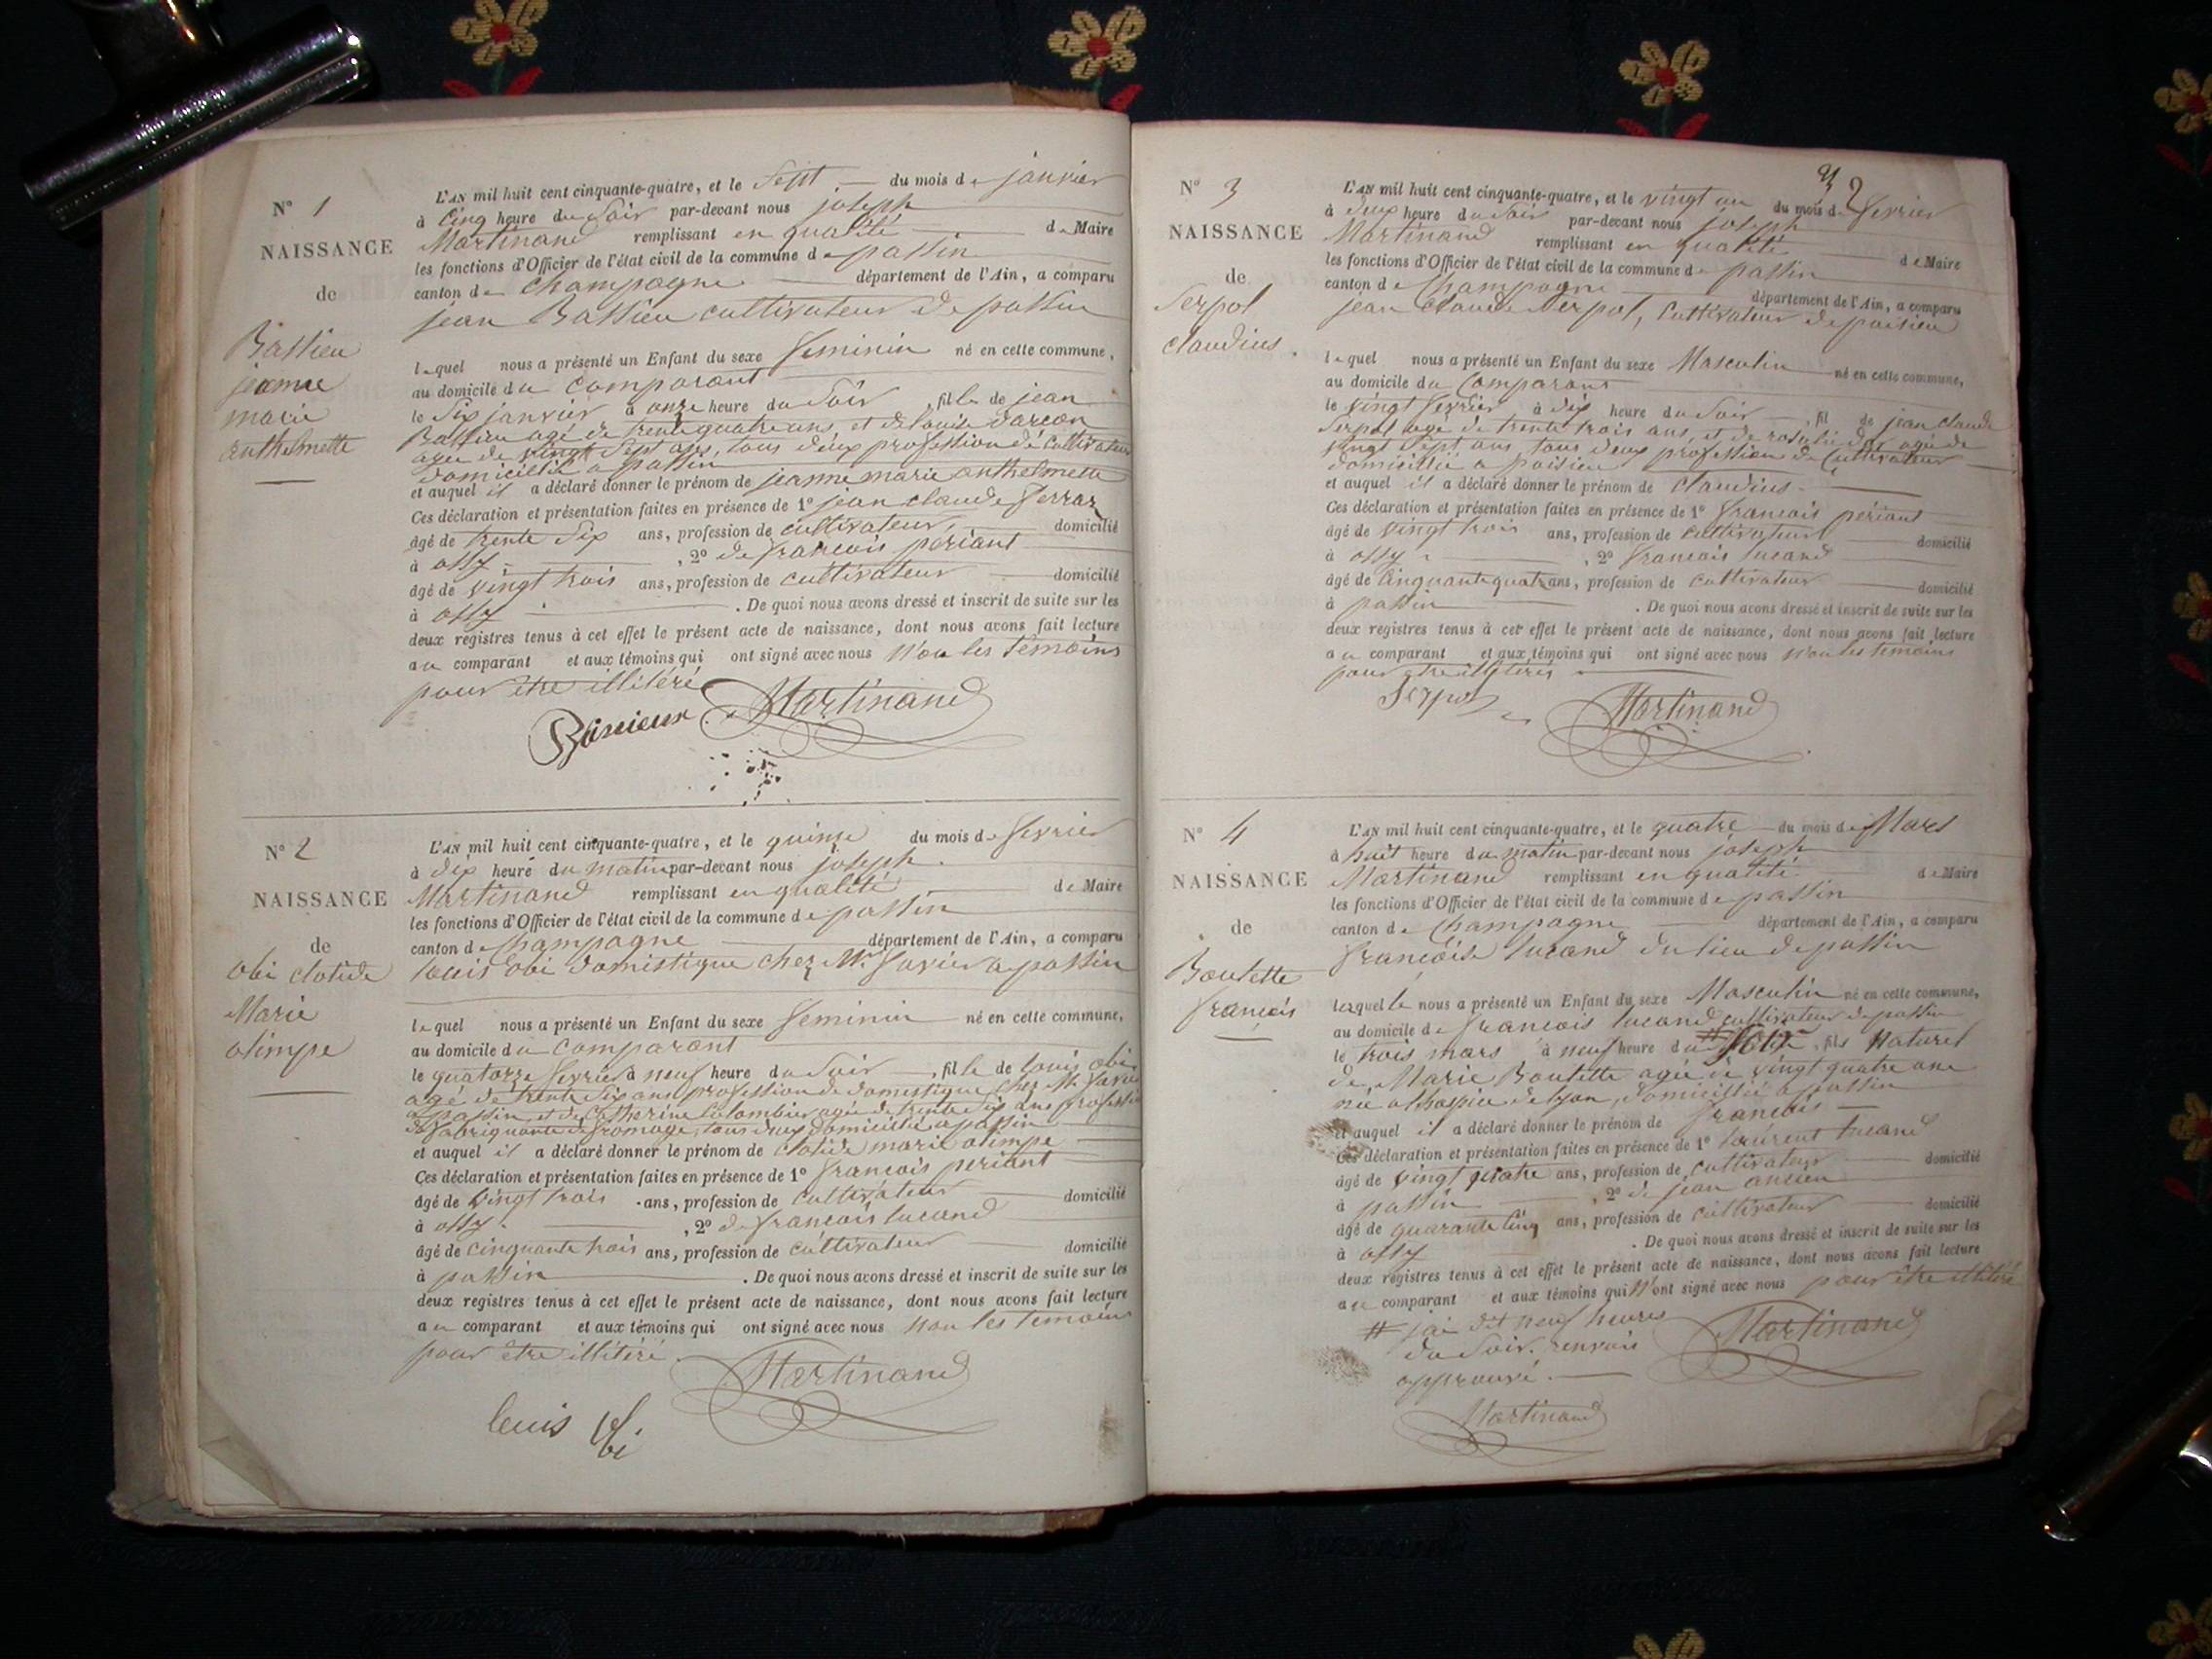 N° 1
NAISSANCE
de
Bassieu
jeanne
marie
anthelmette
L'AN mil huit cent cinquante-quatre, et le Sept du mois de janvier
à Cinq heure du Soir par-devant nous joseph
Martinand remplissant en qualité de Maire
les fonctions d'Officier de l'état civil de la commune de passin
canton de Champagne département de l'Ain, a comparu
jean Bassieu cultivateur de passin
lequel nous a présenté un Enfant du sexe feminin né en cette commune,
au domicile du Comparant
le Six janvier à onze heure du Soir, fille de jean
Bassieu agé de trente quatre ans, et de louise darcon
agee de vingt Sept ans, tous deux profession de Cultivateur
domicilié a passin
et auquel il a déclaré donner le prénom de jeanne marie anthelmette
Ces déclaration et présentation faites en présence de 1° jean claude ferraz
âgé de trente Six ans, profession de cultivateur, domicilié
à ossy , 2° de francois periant
âgé de vingt trois ans, profession de cultivateur domicilié
à ossy . De quoi nous avons dressé et inscrit de suite sur les
deux registres tenus à cet effet le présent acte de naissance, dont nous avons fait lecture
au comparant et aux témoins qui ont signé avec nous Non les temoins
pour être illitéré
Bassieux Martinand
N° 2
NAISSANCE
de
obi clotide
Marie
olimpe
L'AN mil huit cent cinquante-quatre, et le quinze du mois de fevrier
à dix heure du matin par-devant nous joseph
Martinand remplissant en qualité de Maire
les fonctions d'Officier de l'état civil de la commune de passin
canton de Champagne département de l'Ain, a comparu
louis obi domistique chez Mr. Savier a passin
lequel nous a présenté un Enfant du sexe feminin né en cette commune,
au domicile du Comparant
le quatorze fevrier à neuf heure du Soir, fille de louis obi
agé de trente Six ans profession de domestique chez Mr.
a passin, et de Catherine Colombier agée de trente Six ans profession
de fabriquante de fromage, tous deux domicilié a passin
et auquel il a déclaré donner le prénom de clotide marie olimpe
Ces déclaration et présentation faites en présence de 1° francois periant
âgé de vingt trois ans, profession de cultivateur domicilié
à ossy , 2° de francois lucand
âgé de cinquante trois ans, profession de cultivateur domicilié
à passin . De quoi nous avons dressé et inscrit de suite sur les
deux registres tenus à cet effet le présent acte de naissance, dont nous avons fait lecture
au comparant et aux témoins qui ont signé avec nous Non les temoins
pour être illitéré
Martinand
louis obi
2
N° 3
NAISSANCE
de
Serpol
claudius.
L'AN mil huit cent cinquante-quatre, et le vingt un du mois de fevrier
à deux heure du Soir par-devant nous joseph
Martinand remplissant en qualité de Maire
les fonctions d'Officier de l'état civil de la commune de passin
canton de Champagne département de l'Ain, a comparu
jean Claude Serpol, Cultivateur de poisieu
lequel nous a présenté un Enfant du sexe Masculin né en cette commune,
au domicile du Comparant
le vingt fevrier à dix heure du Soir, fil de jean claude
Serpol agé de trente trois ans, et de rosalie agée de
vingt Sept ans tous deux profession de Cultivateur
domicilié a poisieu
et auquel il a déclaré donner le prénom de Claudius.
Ces déclaration et présentation faites en présence de 1° francois periant
âgé de vingt trois ans, profession de cultivateur domicilié
à ossy , 2° francois lucand
âgé de Cinquante quatre ans, profession de cultivateur domicilié
à passin . De quoi nous avons dressé et inscrit de suite sur les
deux registres tenus à cet effet le présent acte de naissance, dont nous avons fait lecture
au comparant et aux témoins qui ont signé avec nous Non les temoins
pour etre illitérés
Serpol Martinand
N° 4
NAISSANCE
de
Boutette
francois
L'AN mil huit cent cinquante-quatre, et le quatre du mois de Mars
à huit heure du matin par-devant nous joseph
Martinand remplissant en qualité de Maire
les fonctions d'Officier de l'état civil de la commune de passin
canton de Champagne département de l'Ain, a comparu
francoise lucand du lieu de passin
laquelle nous a présenté un Enfant du sexe Masculin né en cette commune,
au domicile de francois lucand cultivateur de passin
le trois mars à neuf heure du # Soir, fils Naturel
de Marie Boutette agée de vingt quatre ans
née a lhospice de lyon, domiciliée a passin
et auquel il a déclaré donner le prénom de francois
Ces déclaration et présentation faites en présence de 1° laurent lucand
âgé de vingt quatre ans, profession de cultivateur domicilié
à passin , 2° de jean ancien
âgé de quarante Cinq ans, profession de cultivateur domicilié
à ossy . De quoi nous avons dressé et inscrit de suite sur les
deux registres tenus à cet effet le présent acte de naissance, dont nous avons fait lecture
au comparant et aux témoins qui N'ont signé avec nous pour être illitéré
# j'ai dit neuf heures
du Soir. renvois
approuvé.
Martinand
Martinand